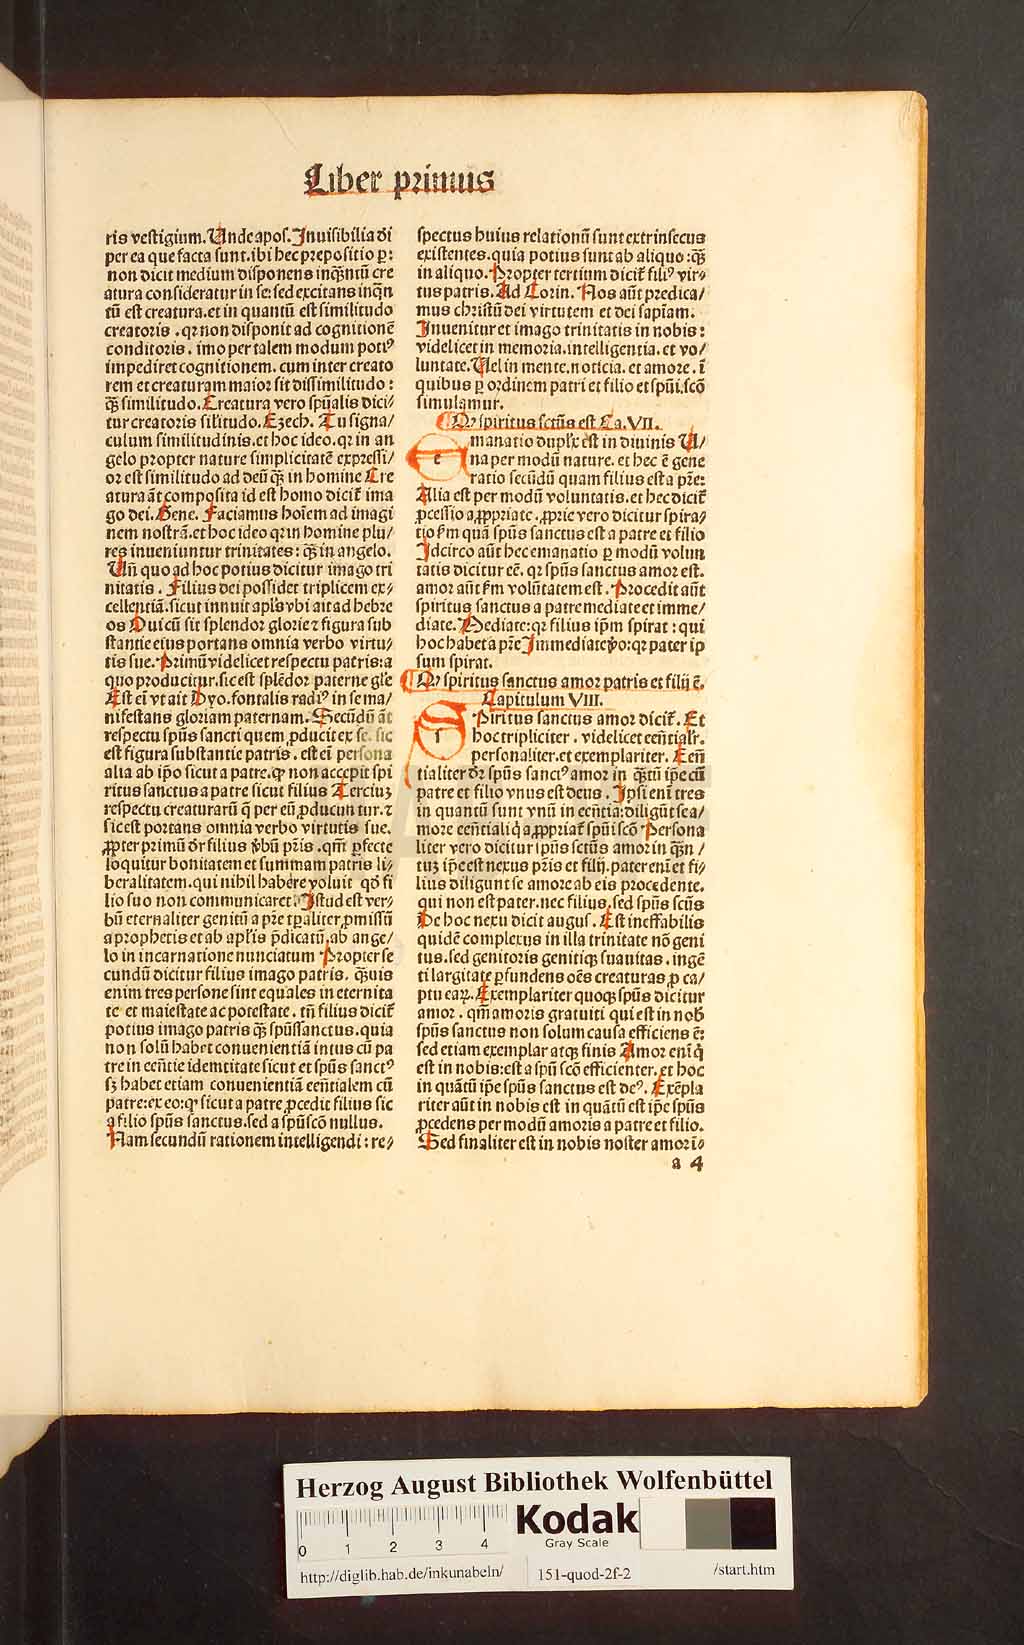 Liber primus
ris vestigium. Unde apos. Inuisibilia di
per ea que facta sunt. ibi hec prepositio ꝑ:
non dicit medium disponens inqᷓntū cre
atura consideratur in se: sed excitans inqᷓn
tū est creatura. et in quantū est similitudo
creatoris . qr non disponit ad cognitionē
conditoris . imo per talem modum potiꝰ
impediret cognitionem. cum inter creato
rem et creaturam maior sit dissimilitudo :
qᷓꝫ similitudo. Creatura vero spūalis dici/
tur creatoris silitudo. Ezech. Tu signa/
culum similitudinis. et hoc ideo. qr in an
gelo propter nature simplicitatē expressi/
or est similitudo ad deū qᷓꝫ in homine Cre
atura āt composita id est homo dicit̄ ima
go dei. Gene. Faciamus hoīem ad imagi
nem nostrā. et hoc ideo qr in homine plu/
res inueniuntur trinitates : qᷓꝫ in angelo.
Uñ quo ad hoc potius dicitur imago tri
nitatis . Filius dei possidet triplicem ex/
cellentiā. sicut innuit apl's vbi ait ad hebre
os Qui cū sit splendor glorie ⁊ figura sub
stantie eius portans omnia verbo virtu/
tis sue. Primū videlicet respectu patris: a
quo producitur. sic est splēdor paterne gl'e
Est eī vt ait Dyo. fontalis radiꝰ in se ma/
nifestans gloriam paternam. Secūdū āt
respectu spūs sancti quem ꝓducit ex se. sic
est figura substantie patris . est eī persona
alia ab ip̄o sicut a patre. ꝙ non accepit spi
ritus sanctus a patre sicut filius Terciuꝫ
respectu creaturarū q̄ per eū ꝓducuntur. ⁊
sic est portans omnia verbo virtutis sue.
ꝓpter primū dr̄ filius v̄bū pr̄is . qm̄ ꝑfecte
loquitur bonitatem et summam patris li/
beralitatem. qui nihil habere voluit qd̄ fi
lio suo non communicaret Istud est ver/
bū eternaliter genitū a pr̄e tp̄aliter ꝓmissū
a prophetis et ab apl'is p̄dicatū. ab ange/
lo in incarnatione nunciatum Propter se
cundū dicitur filius imago patris. qᷓꝫuis
enim tres persone sint equales in eternita
te et maiestate ac potestate. tñ filius dicit̄
potius imago patris qᷓꝫ spūssanctus. quia
non solū habet conuenientiā intus cū pa
tre in eēntie idemtitate sicut et spūs sanctꝰ
sꝫ habet etiam conuenientiā eēntialem cū
patre: ex eo: ꝙ sicut a patre ꝓcedit filius sic
a filio spūs sanctus. sed a spūscō nullus.
Nam secundū rationem intelligendi : re/
spectus huius relationū sunt extrinsecus
existentes. quia potius sunt ab aliquo : qᷓꝫ
in aliquo. Propter tertium dicit̄ filiꝰ vir/
tus patris. Ad Corin. Nos aūt predica/
mus christū dei virtutem et dei sapiam.
Inuenitur et imago trinitatis in nobis :
videlicet in memoria. intelligentia. et vo/
luntate. Uel in mente. noticia. et amore . ī
quibus ꝑ ordinem patri et filio et spūi. scō
simulamur.
Qꝙ spiritus sctūs est Ca. VII.
e manatio dupl'x est in diuinis U/
na per modū nature. et hec ē gene
ratio secūdū quam filius est a pr̄e:
Alia est per modū voluntatis. et hec dicit̄
ꝓcessio aꝓpriate. ꝓprie vero dicitur spira/
tio s'm quā spūs sanctus est a patre et filio
Idcirco aūt hec emanatio ꝑ modū volun
tatis dicitur eē. qr spūs sanctus amor est.
amor aūt s'm volūtatem est . Procedit aūt
spiritus sanctus a patre mediate et imme/
diate. Mediate: qr filius ip̄m spirat : qui
hoc habet a pr̄e Immediate v̄o: qr pater ip
sum spirat.
Qꝙ spiritus sanctus amor patris et filij ē.
Capitulum VIII.
s Piritus sanctus amor dicit̄. Et
hoc tripliciter . videlicet eēntialr̄.
personaliter. et exemplariter. Eēn
tialiter dr̄ spūs sanctꝰ amor in qᷓꝫtū ip̄e cū
patre et filio vnus est deus . Ipsi enī tres
in quantū sunt vnū in eēntia: diligūt se a/
more eēntiali q̄ aꝓpriat̄ spūi scō Persona
liter vero dicitur spūs sctūs amor in qᷓꝫn /
tuꝫ ip̄e est nexus pr̄is et filij. pater enī et fi/
lius diligunt se amore ab eis procedente.
qui non est pater. nec filius. sed spūs scūs
De hoc nexu dicit augus. Est ineffabilis
quidē complexus in illa trinitate nō geni
tus. sed genitoris genitiqꝫ suauitas . ingē
ti largitate ꝑfundens oēs creaturas ꝓ ca/
ptu eaꝝ. Exemplariter quoqꝫ spūs dicitur
amor . qm̄ amoris gratuiti qui est in nob̄
spūs sanctus non solum causa efficiens ē:
sed etiam exemplar atqꝫ finis Amor enī q̄
est in nobis: est a spū scō efficienter. et hoc
in quātū ip̄e spūs sanctus est deꝰ. Exēpla
riter aūt in nobis est in quātū est ip̄e spūs
ꝓcedens per modū amoris a patre et filio.
Sed finaliter est in nobis noster amor ī/
a 4
Herzog August Bibliothek Wolfenbüttel
0 1 2 3 4
Kodak
Gray Scale
http://diglib.hab.de/inkunabeln/ 151-quod-2f-2 /start.htm